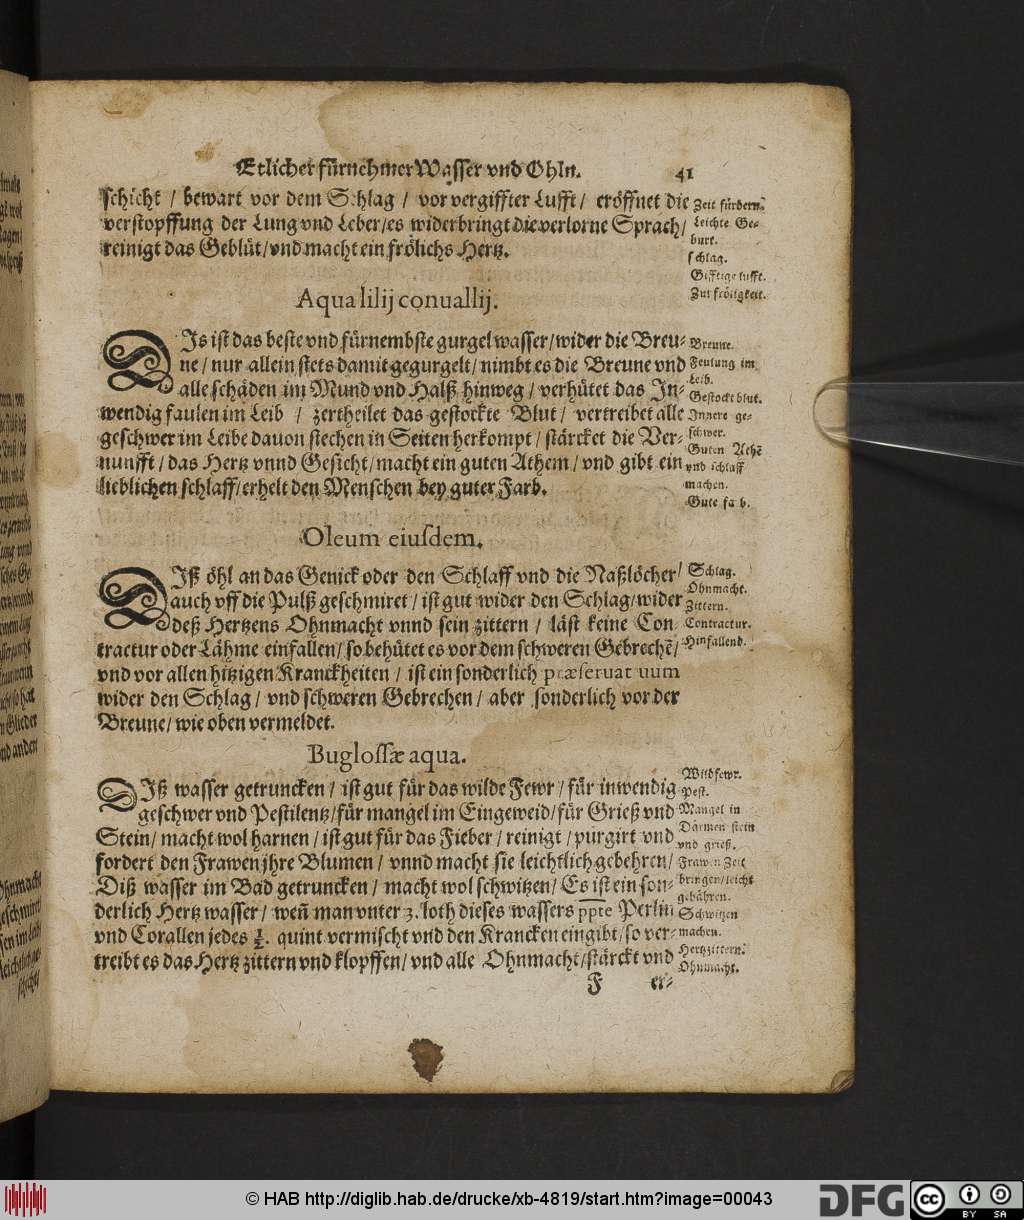 Etlicher fürnehmer Wasser vnd Ohln. 41
schicht / bewart vor dem Schlag / vor vergiffter Lufft / eröffnet die
verstopffung der Lung vnd Leber/es widerbringt die verlorne Sprach/
reinigt das Geblüt/vnd macht ein frölichs Hertz.
Zeit fürdern.
Leichte Ge-
burt.
schlag.
Gifftige lufft.
Zur fröligkeit.
Aqua lilij conuallij.
DIs ist das beste vnd fürnembste gurgel wasser/wider die Breu-
ne / nur allein stets damit gegurgelt / nimbt es die Breune vnd
alle schäden im Mund vnd Halß hinweg / verhütet das In-
wendig faulen im Leib / zertheilet das gestockte Blut / vertreibet alle
geschwer im Leibe dauon stechen in Seiten herkompt / stärcket die Ver-
nunfft / das Hertz vnnd Gesicht/macht ein guten Athem / vnd gibt ein
lieblichen schlaff/erhelt den Menschen bey guter Farb.
Breune.
Feulung im
Leib.
Gestockt blut.
Innere ge-
schwer.
Guten Athē
vnd schlaff
machen.
Gute farb.
Oleum eiusdem.
DIß öhl an das Genick oder den Schlaff vnd die Naßlöcher/
auch vff die Pulß geschmiret / ist gut wider den Schlag/wider
deß Hertzens Ohnmacht vnnd sein zittern / läst keine Con
tractur oder Lähme einfallen/so behütet es vor dem schweren Gebrechē/
vnd vor allen hitzigen Kranckheiten / ist ein sonderlich præseruat uum
wider den Schlag / vnd schweren Gebrechen / aber sonderlich vor der
Breune / wie oben vermeldet.
Schlag.
Ohnmacht.
Zittern.
Contractur.
Hinfallend.
Buglossæ aqua.
DIß wasser getruncken / ist gut für das wilde Fewr / für inwendig
geschwer vnd Pestilentz/für mangel im Eingeweid/für Grieß vnd
Stein / macht wol harnen / ist gut für das Fieber / reinigt / purgirt vnd
fordert den Frawen jhre Blumen / vnnd macht sie leichtlich gebehren/
Diß wasser im Bad getruncken / macht wol schwitzen / Es ist ein son-
derlich Hertz wasser / weñ man vnter 3. loth dieses wassers ppte Perlin
vnd Corallen jedes ½. quint vermischt vnd den Krancken eingibt/so ver-
treibt es das Hertz zittern vnd klopffen/ vnd alle Ohnmacht/stärckt vnd
Wildfewr.
Pest.
Mangel in
Därmen stein
vnd grieß.
Frawen Zeit
bringen/leicht
gebähren.
Schwitzen
machen.
Hertzzittern.
Ohnmacht.
F er-
© HAB http://diglib.hab.de/drucke/xb-4819/start.htm?image=00043
DFG
cc BY SA